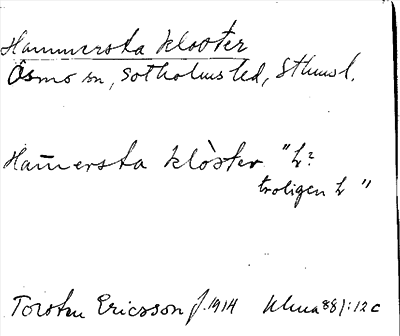 Hammersta kloster
Ösmo sn, Sotholms hd, Sthms l.
Ham̄ersta klòster "L?
troligen L"
Torsten Ericsson f. 1914 881:12 c